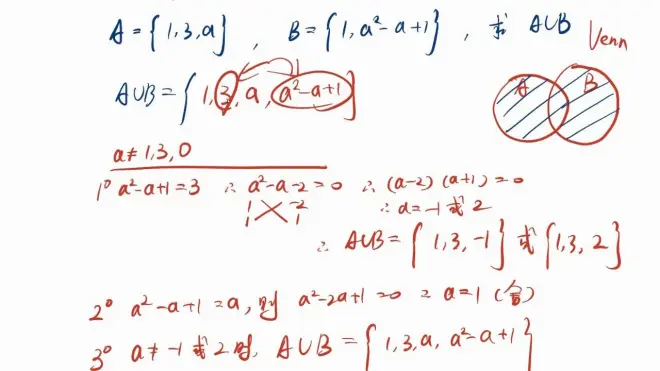 A={1,3,a}, B={1,a²-a+1}, 求 A∪B Venn
A∪B={1,3,a,a²-a+1} A B
a≠1,3,0
1° a²-a+1=3 ∴ a²-a-2=0 ∴ (a-2)(a+1)=0
1 -2
1 1
∴ a=-1 或 2
∴ A∪B={1,3,-1} 或 {1,3,2}
2° a²-a+1=a, 则 a²-2a+1=0 ∴ a=1 (舍)
3° a≠-1 或 2 时, A∪B={1,3,a,a²-a+1}